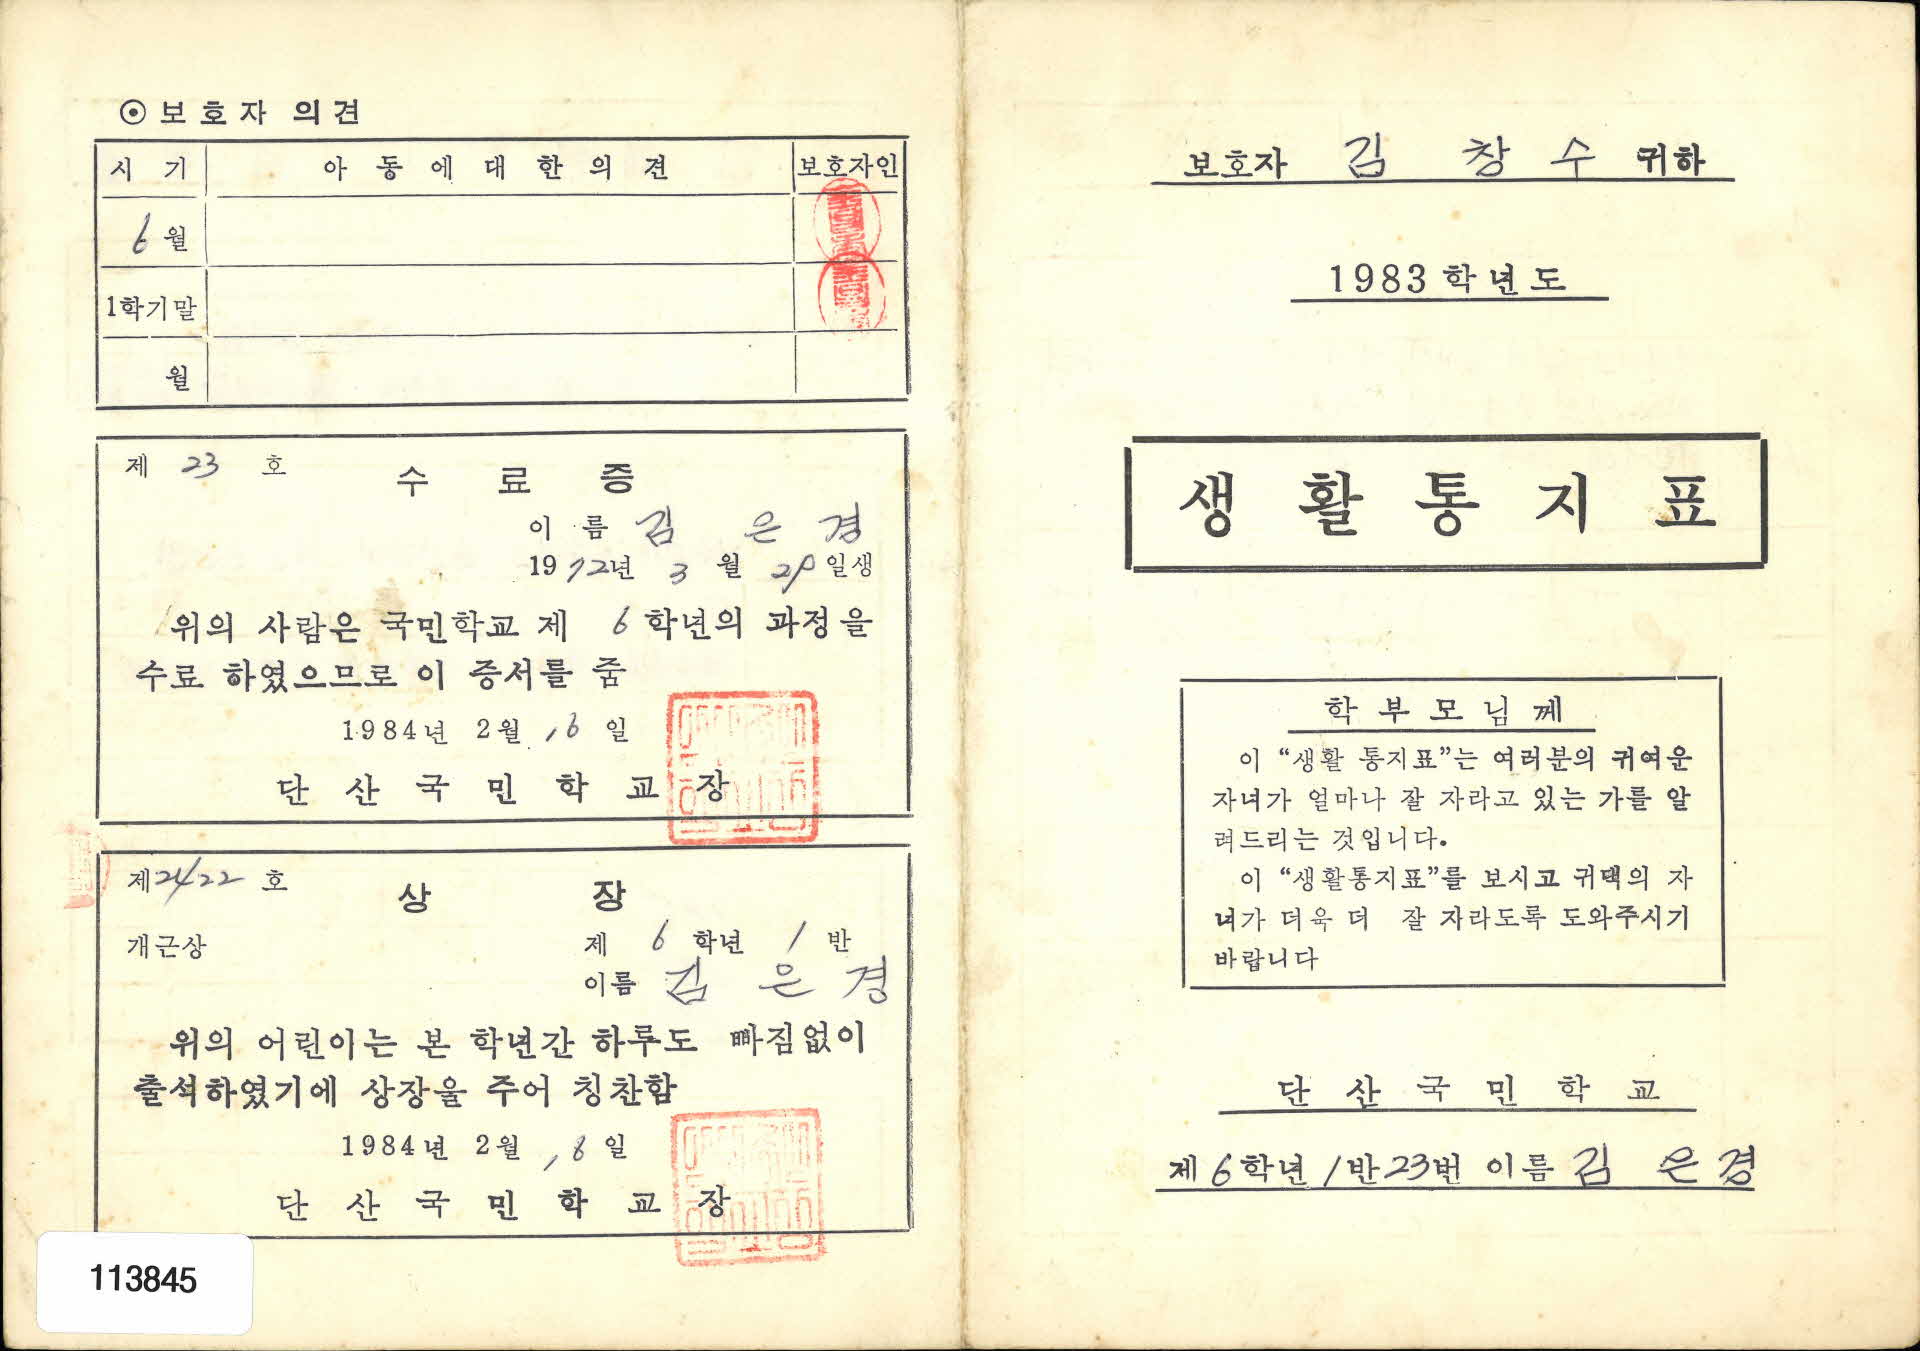 ⊙ 보호자 의견
시 기 아 동 에 대 한 의 견 보호자인
6 월
1학기말
월
제 23 호
수 료 증
이 름 김 은 경
1972년 3 월 29일생
위의 사람은 국민학교 제 6 학년의 과정을
수료 하였으므로 이 증서를 줌
1984년 2월 16 일
단 산 국 민 학 교 장
제 호
상 장
개근상
제 6 학년 1 반
이름 김 은 경
위의 어린이는 본 학년간 하루도 빠짐없이
출석하였기에 상장을 주어 칭찬함
1984년 2월 16 일
단 산 국 민 학 교 장
113845
보호자 김 창 수 귀하
1983학년도
생 활 통 지 표
학 부 모 님 께
이 “생활 통지표”는 여러분의 귀여운
자녀가 얼마나 잘 자라고 있는 가를 알
려드리는 것입니다.
이 “생활통지표”를 보시고 귀댁의 자
녀가 더욱 더 잘 자라도록 도와주시기
바랍니다
단 산 국 민 학 교
제 6 학년 1 반 23번 이름 김 은 경